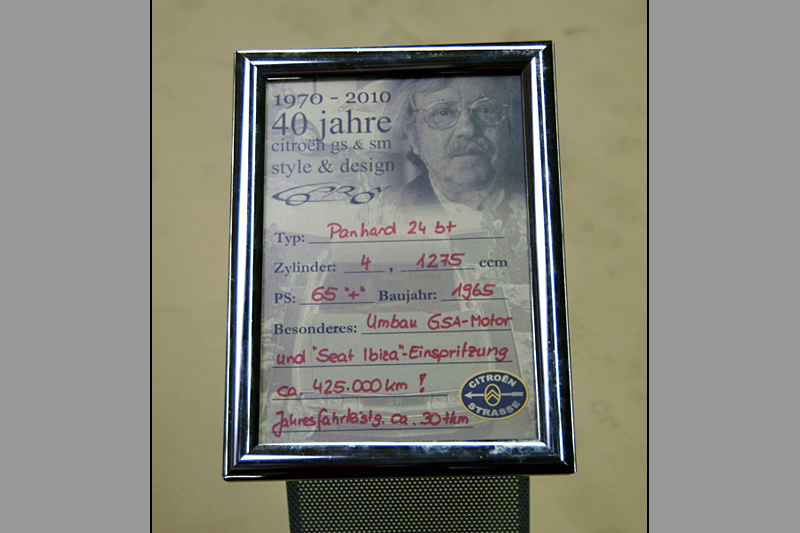 1970 - 2010
40 jahre
citroën gs & sm
style & design
Typ: Panhard 24 bt
Zylinder: 4 , 1275 ccm
PS: 65 "+" Baujahr: 1965
Besonderes: Umbau GSA-Motor
und "Seat Ibiza"-Einspritzung
ca. 425.000 km !
Jahresfahrleistg. ca. 30 tkm
CITROËN
STRASSE